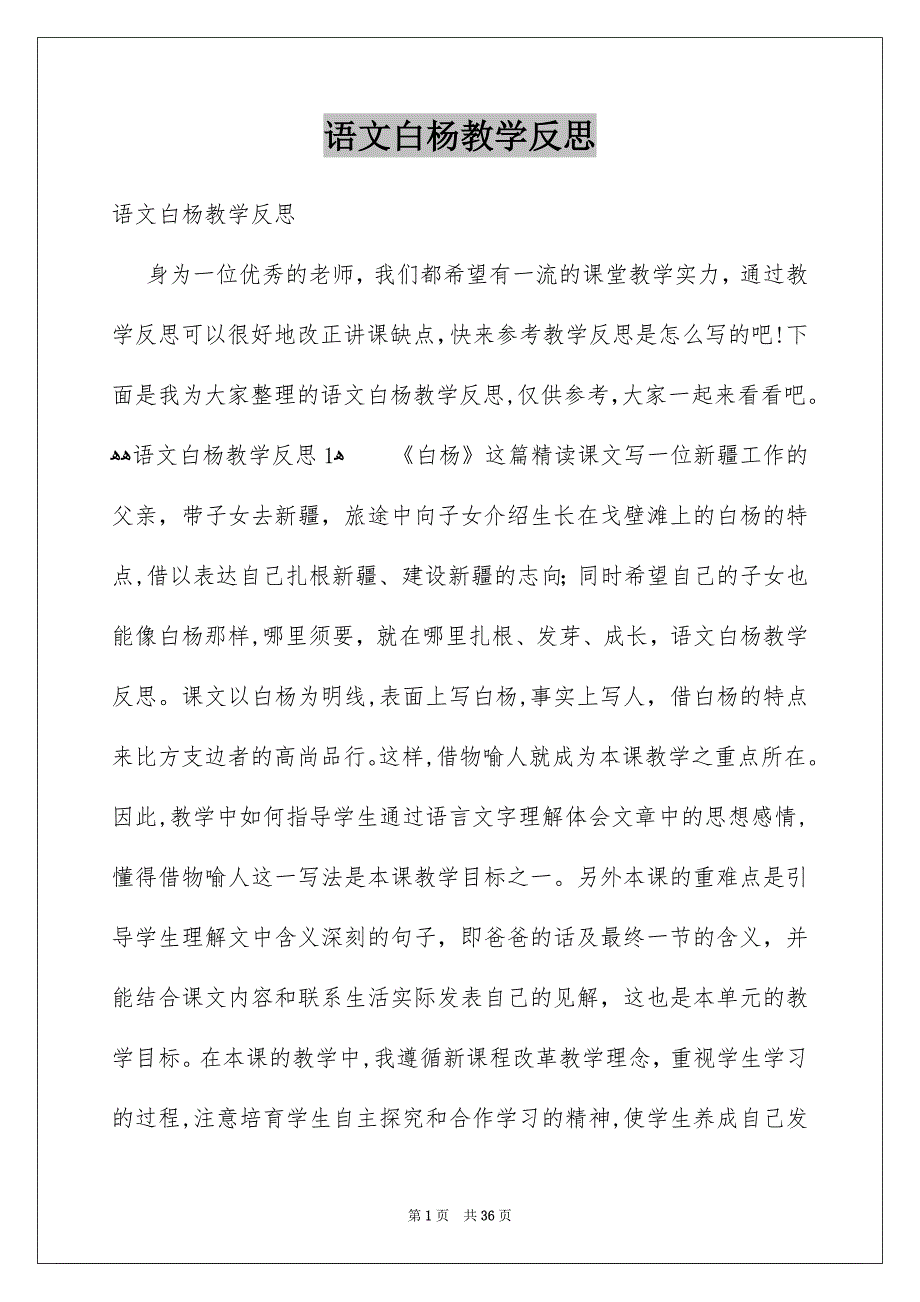 语文白杨教学反思
语文白杨教学反思
身为一位优秀的老师，我们都希望有一流的课堂教学实力，通过教
学反思可以很好地改正讲课缺点，快来参考教学反思是怎么写的吧！下
面是我为大家整理的语文白杨教学反思，仅供参考，大家一起来看看吧。
语文白杨教学反思 1 《白杨》这篇精读课文写一位新疆工作的
父亲，带子女去新疆，旅途中向子女介绍生长在戈壁滩上的白杨的特
点，借以表达自己扎根新疆、建设新疆的志向；同时希望自己的子女也
能像白杨那样，哪里须要，就在哪里扎根、发芽、成长，语文白杨教学
反思。课文以白杨为明线，表面上写白杨，事实上写人，借白杨的特点
来比方支边者的高尚品行。这样，借物喻人就成为本课教学之重点所在。
因此，教学中如何指导学生通过语言文字理解体会文章中的思想感情，
懂得借物喻人这一写法是本课教学目标之一。另外本课的重难点是引
导学生理解文中含义深刻的句子，即爸爸的话及最终一节的含义，并
能结合课文内容和联系生活实际发表自己的见解，这也是本单元的教
学目标。在本课的教学中，我遵循新课程改革教学理念，重视学生学习
的过程，注意培育学生自主探究和合作学习的精神，使学生养成自己发
第 1 页 共 36 页